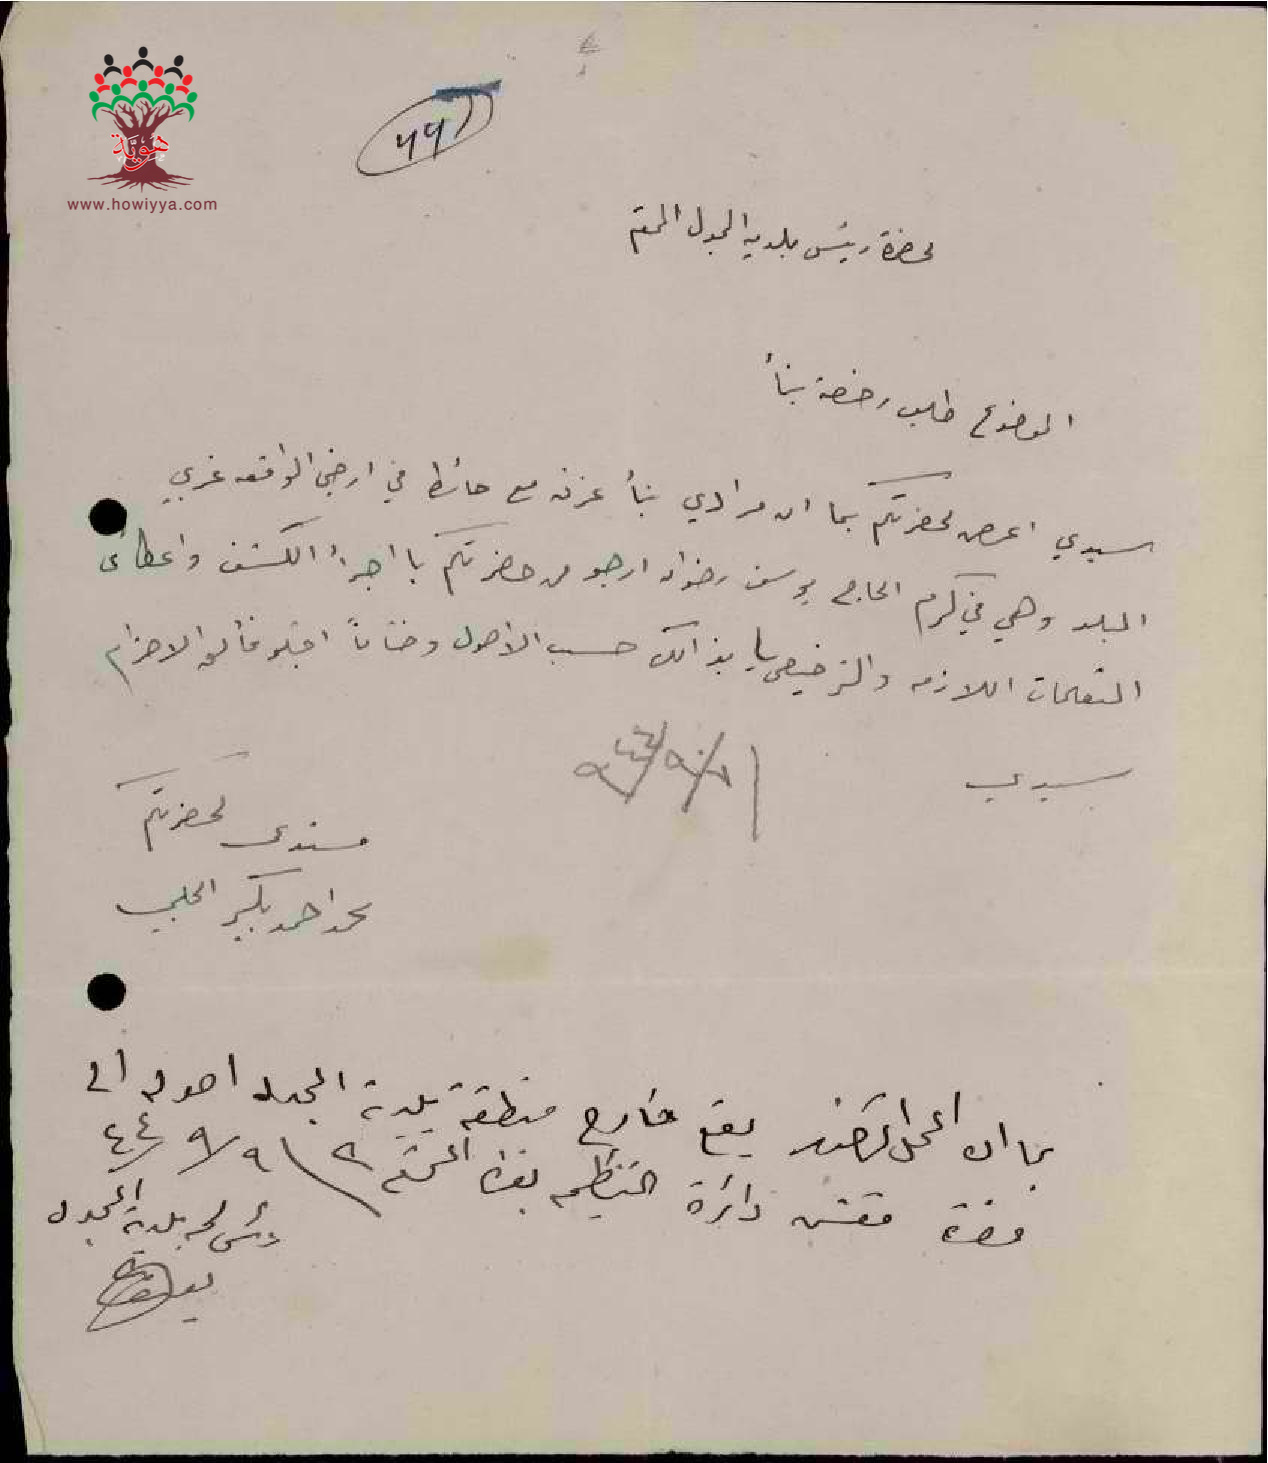 هوية
www.howiyya.com
لحضرة رئيس بلدية المجدل المحترم
الموضوع طلب رخصة بنأ
سيدي اعرض لحضرتكم بما ان مرادي بنأ غرفه مع حائط في ارضي الواقعه غربي
البلد وهي في كرم الحاج يوسف رضوان ارجو من حضرتكم باجرأ الكشف واعطائي
التعليمات اللازمه والترخيص لي بذالك حسب الأصول وختاماً اقبلو فائق الاحترام
سيدي
٩٤٤/٩/
مستدعي لحضرتكم
محمد احمد بكير الحلبي
بما ان المحل يقع خارج منطقة بلدية المجدل احوله الى
حضرة مفتش دائرة التنظيم بغزة المحترم ٩/٩/٤٤
رئيس بلدية المجدل